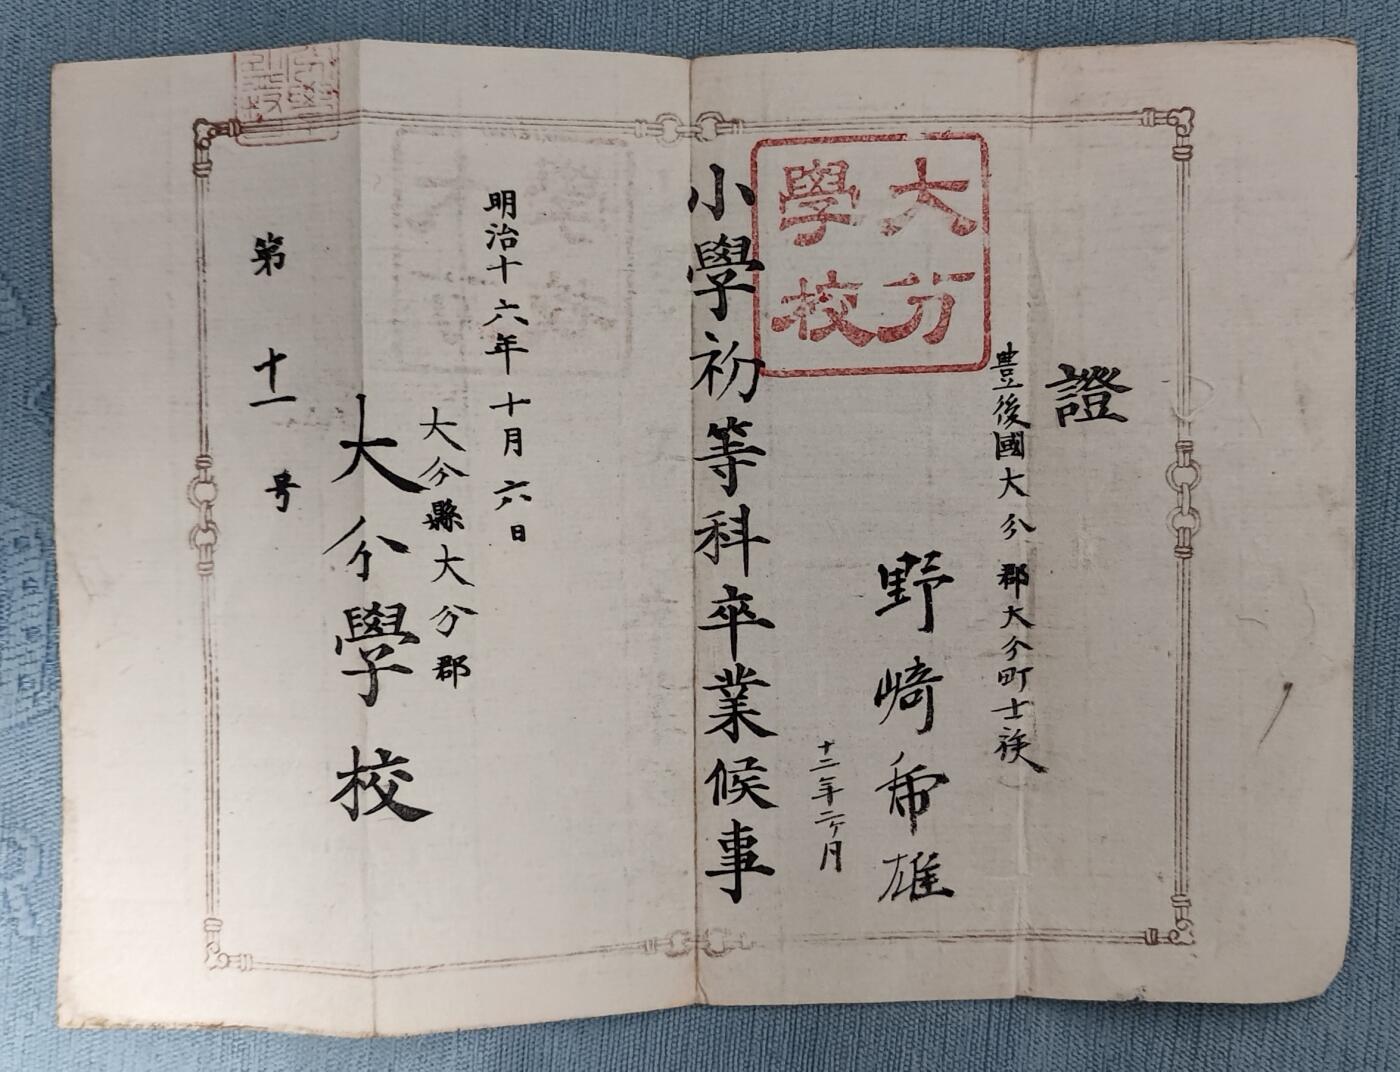 證
豊後國大分郡大分町士族
野﨑希雄
十二年二ヶ月
大分
學校
小學初等科卒業候事
明治十六年十月六日
大分縣大分郡
大分學校
第十一号